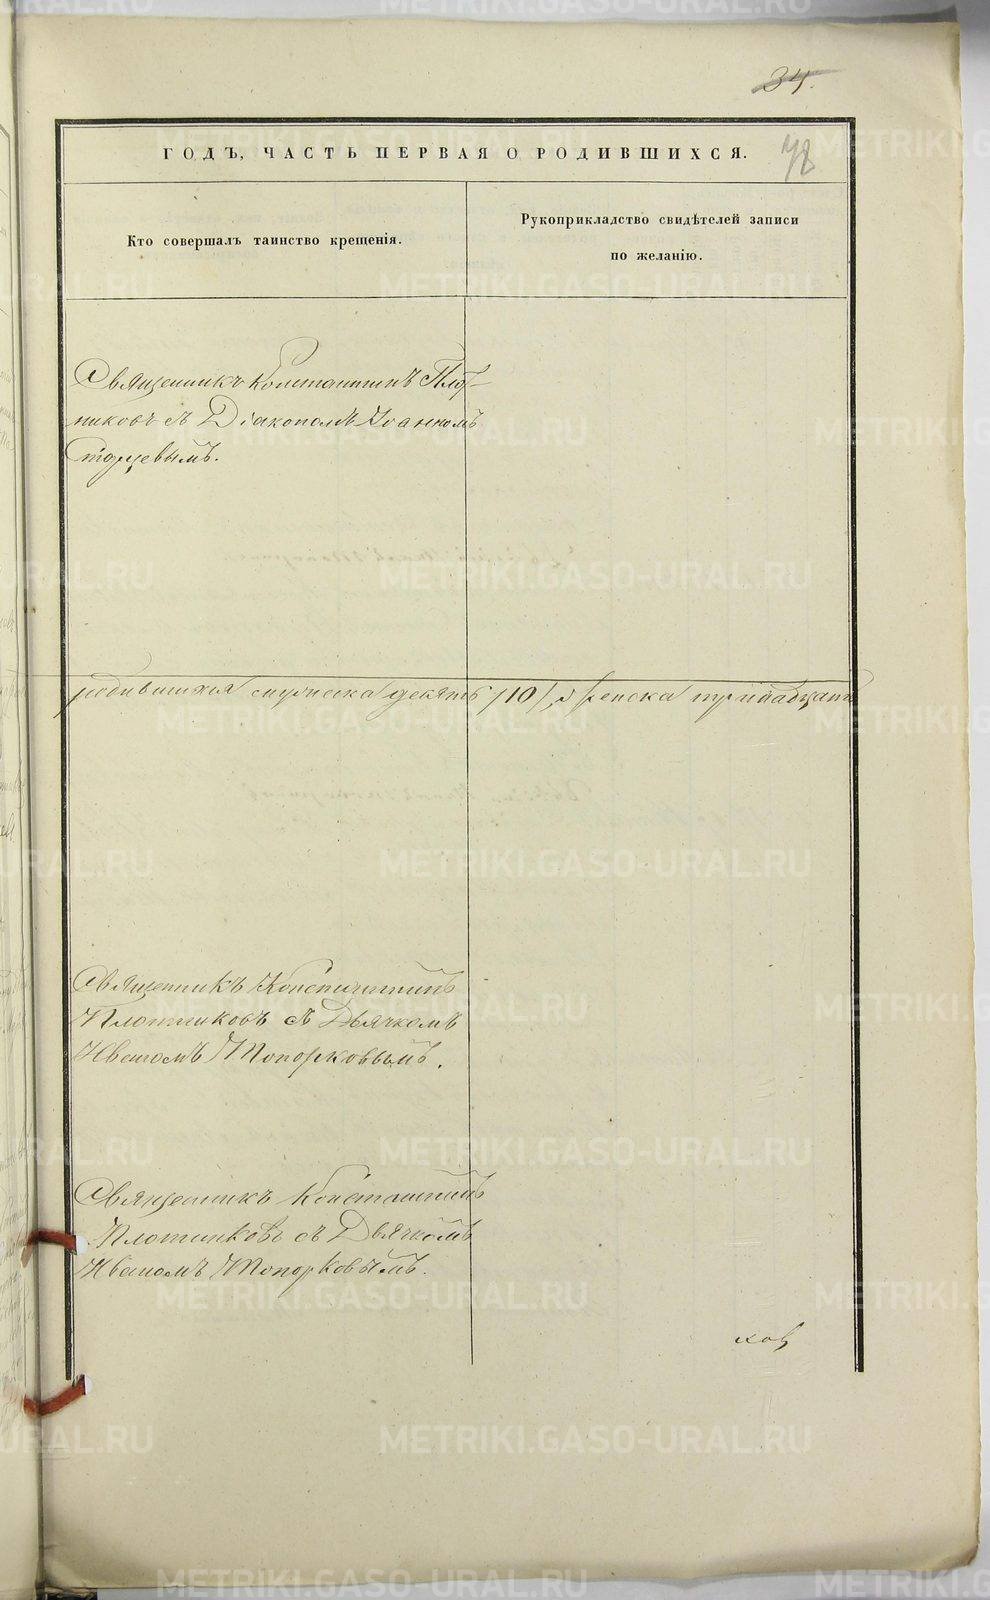 34.
ГОДЪ, ЧАСТЬ ПЕРВАЯ О РОДИВШИХСЯ.
78
Кто совершалъ таинство крещенія.
Рукоприкладство свидѣтелей записи
по желанію.
Священникъ Константинъ Плот-
никовъ съ Діакономъ Іоанномъ
Старцевымъ.
родившихся мужеска десять /10/, а женска тринадцать
Священникъ Константинъ
Плотниковъ съ Дьячкомъ
Иваномъ Топорковымъ.
Священникъ Константинъ
Плотниковъ съ Дьячкомъ
Иваномъ Топорковымъ.
ковъ
METRIKI.GASO-URAL.RU